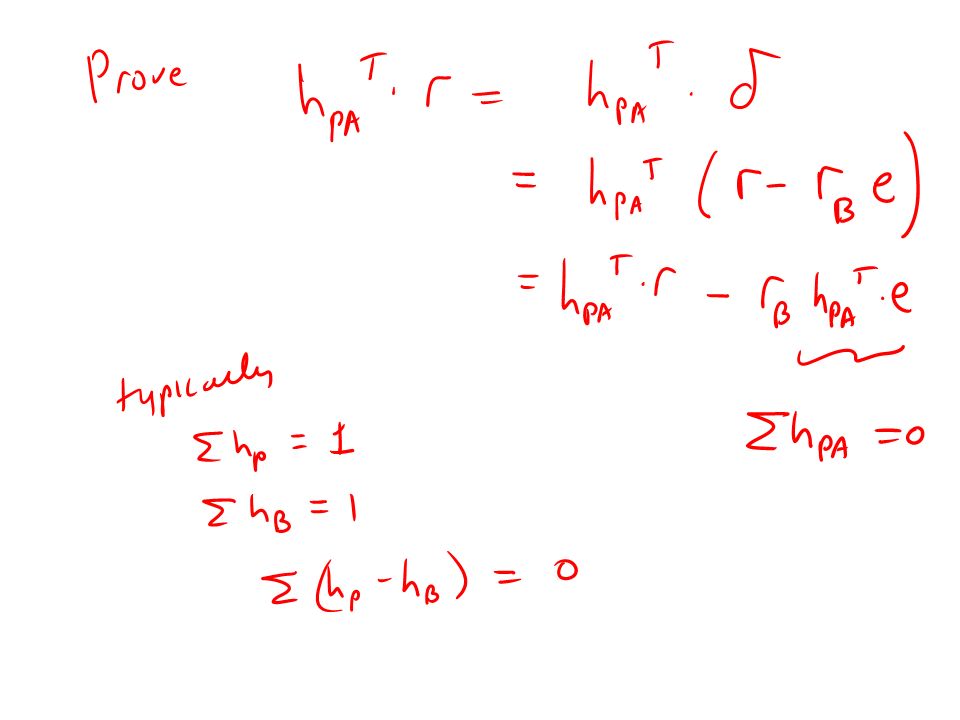 Prove h_PA^T · r = h_PA^T · δ
= h_PA^T (r - r_B e)
= h_PA^T · r - r_B h_PA^T · e
typically
Σ h_p = 1
Σ h_PA = 0
Σ h_B = 1
Σ (h_p - h_B) = 0